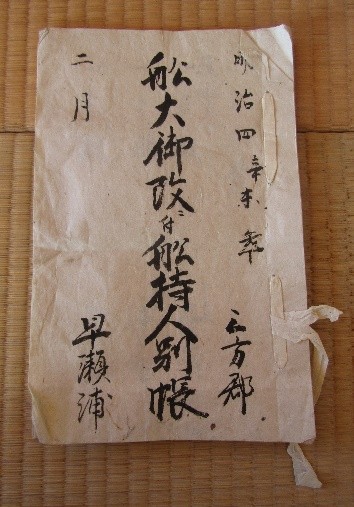 明治四辛未年
三方郡
船大御改ニ付船持人別帳
二月
早瀬浦